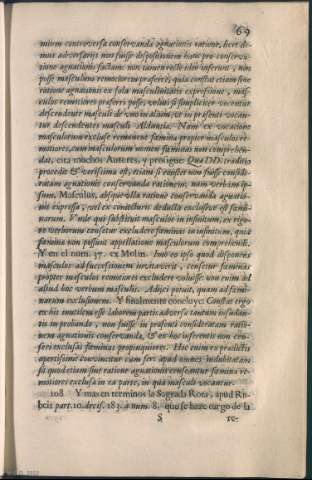 69
mirem controversa conservanda agnationis ratione, licet di-
cunt adversarijs non fuisse dispositionem hanc pro conserva-
tione agnationis factam: non tamen recte ideo inferunt, non
posse masculum remotiorem præferri, quia constat etiam sine
ratione agnationis ex sola masculinitatis expressione, mas-
culos remotiores præferri posse, veluti si simpliciter vocentur
descendente masculi de uno in alium, ut in præsenti vocan-
tur descendentes masculi Aldantia. Nam ex vocatione
masculorum exclusæ remanent fœminæ propter masculos re-
motiores, cum masculorum nomen fœminas non comprehen-
dat, cita muchos Autores, y prosigue: Quæ DD. traditio
procedit & verissima est, etiam si constet non fuisse conside-
ratam agnationis conservandæ rationem, nam verba ip-
sum, Masculus, absque ulla ratione conservandæ agnatio-
nis expressa, vel ex coniecturis deducta excludunt fœmi-
narum. Unde qui substituit masculos in infinitum, ex rigo-
re verborum censetur excludere fœminas in infinitum, quia
fœminæ non possunt appellatione masculorum comprehendi.
Y en el num. 37. ex Molin. Imò eo ipso quod disponens
masculos ad successionem invitaverit, censetur fœminas
propter masculos remotiores excludere voluisse: non enim ad
aliud hoc verbum masculis. Adijci potuit, quam ad fœmi-
narum exclusionem. Y finalmente concluye: Constat ergo
ex his inutilem esse laborem partis adversæ tantùm insudan-
tis in probando, non fuisse in præsenti consideratam ratio-
nem agnationis conservandæ, & ex hoc inferentis non cen-
seri exclusas fœminas propinquiores. Hoc enim ex prædictis
apertissimè convincitur cum seri apud omnes indubitatum
sit quod etiam sine ratione agnationis censeantur fœminæ re-
motiores exclusa in ea parte, in qua masculi vocantur.
108 Y mas en terminos la Sagrada Rota, apud Ru-
beis part. 10. decis. 183. à num. 8. que se haze cargo de la
S re-